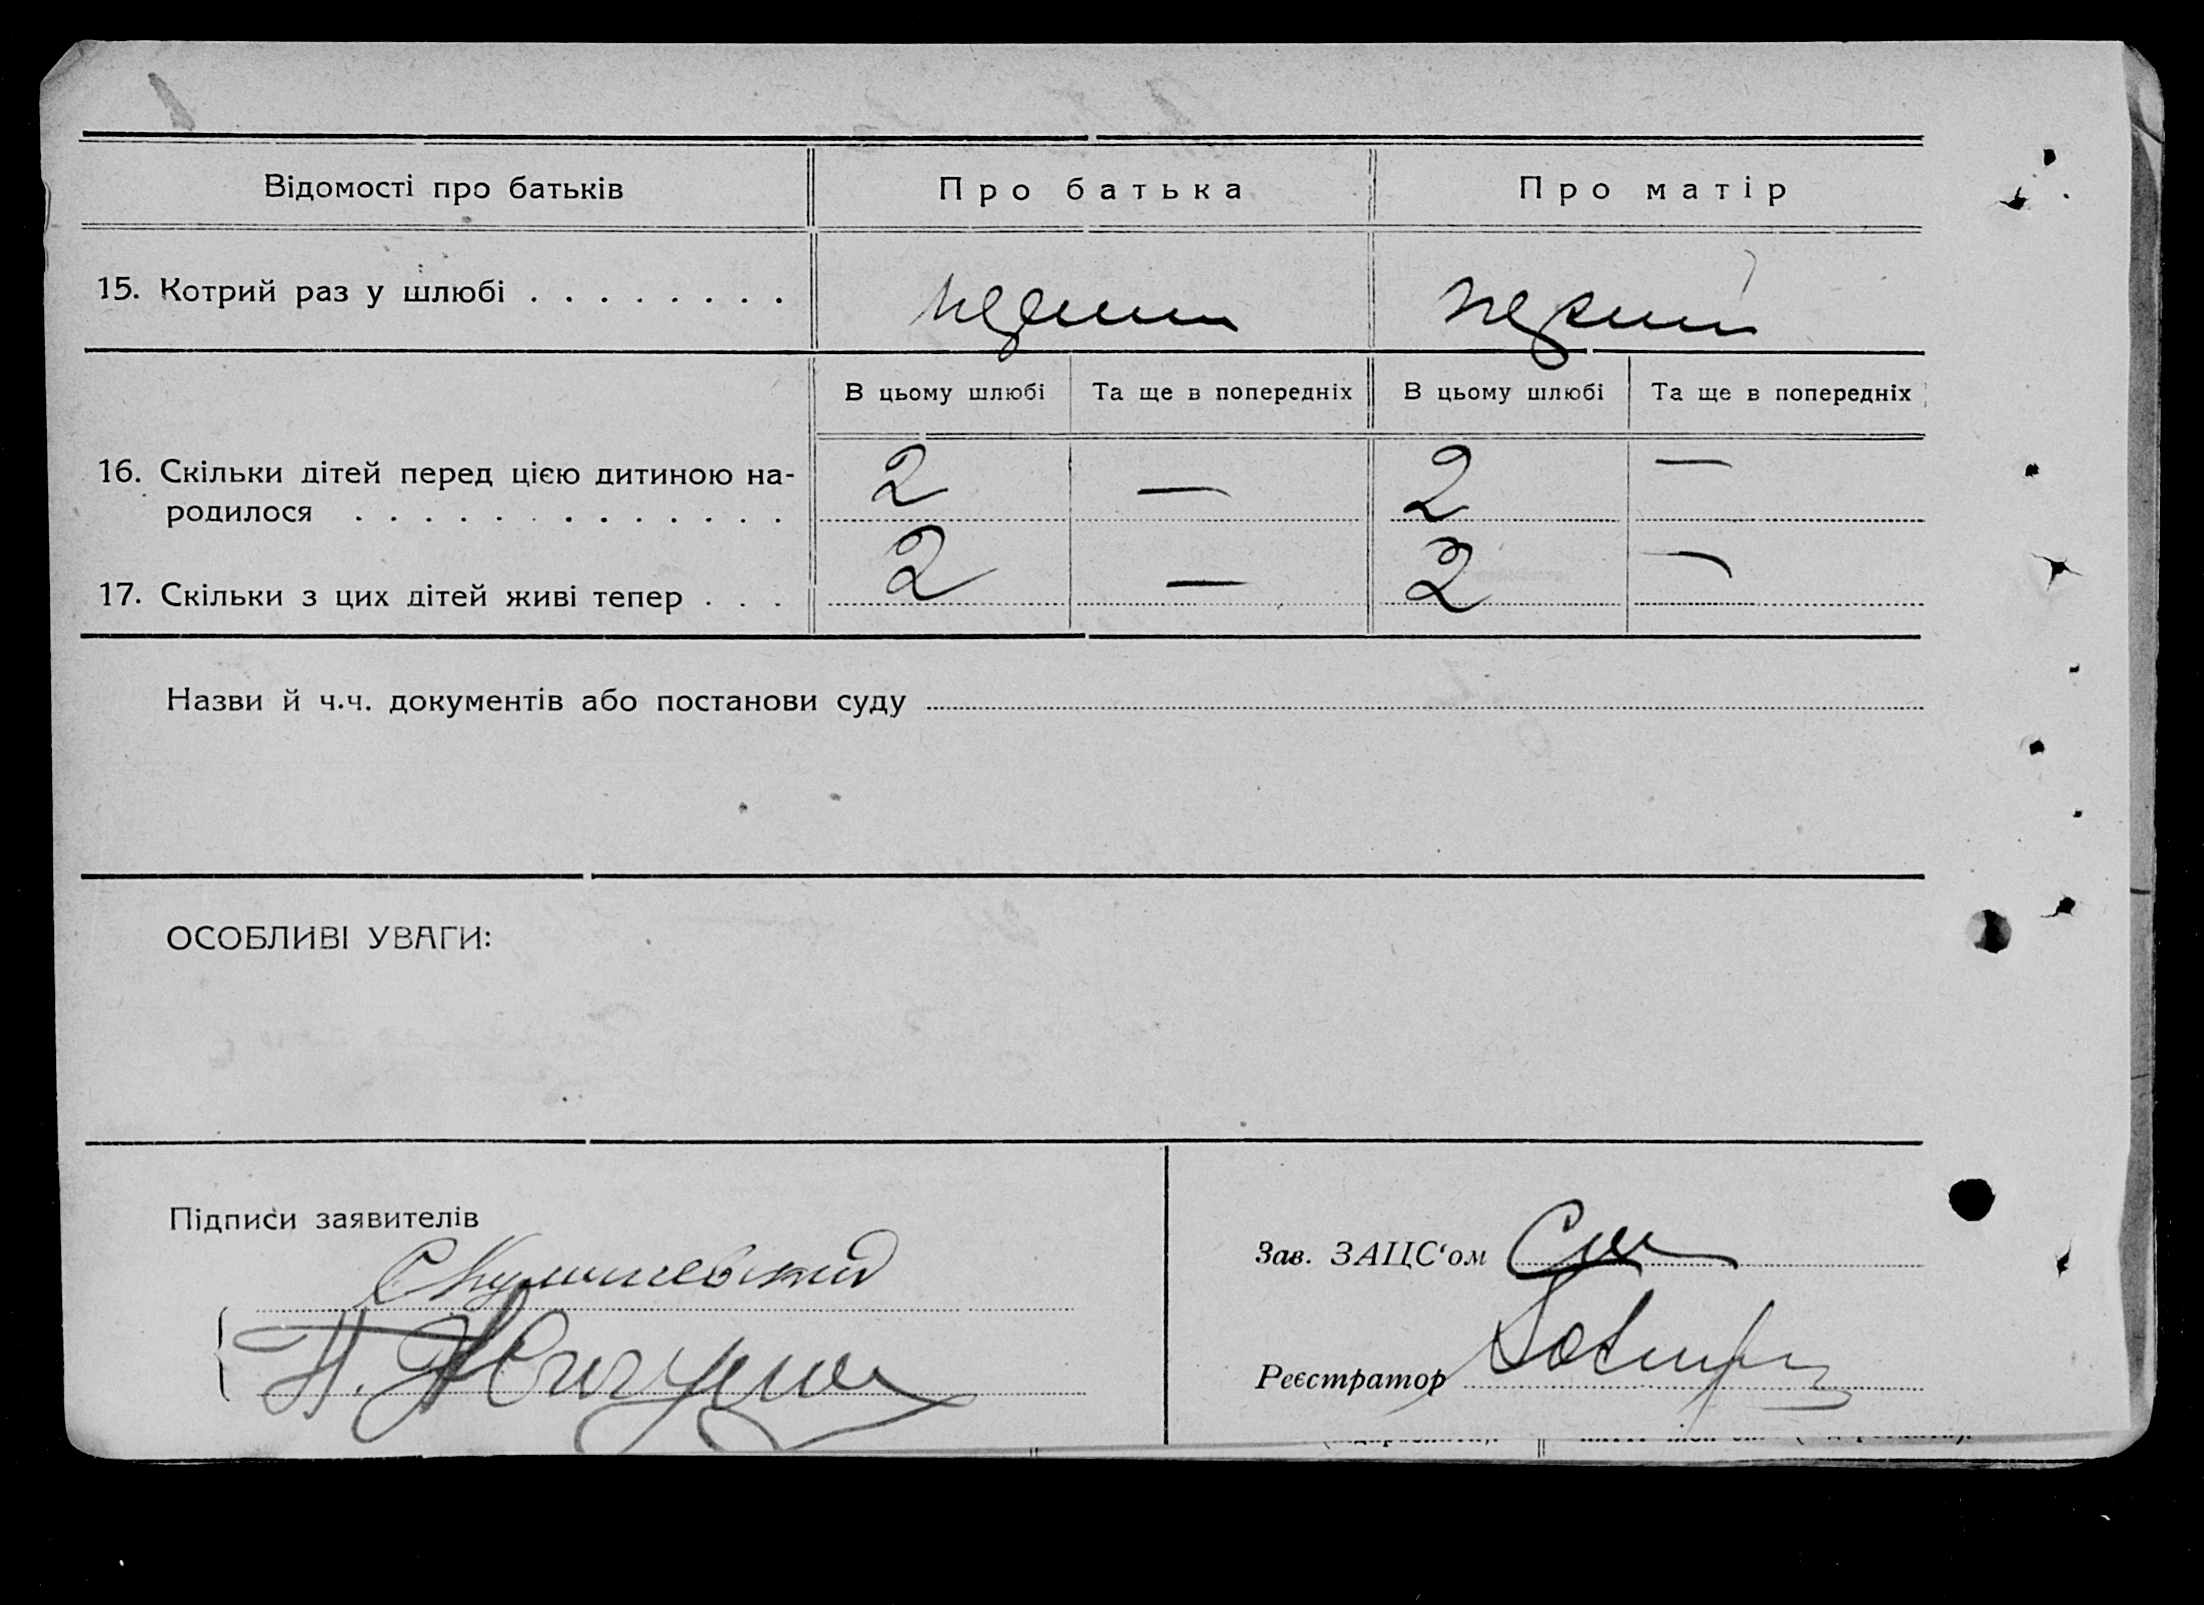 Відомості про батьків Про батька Про матір
15. Котрий раз у шлюбі . . . . . . . . перший перший
В цьому шлюбі Та ще в попередніх В цьому шлюбі Та ще в попередніх
16. Скільки дітей перед цією дитиною на-
родилося . . . . . . . . . . . . . 2 — 2 —
17. Скільки з цих дітей живі тепер . . . 2 — 2 —
Назви й ч.ч. документів або постанови суду
ОСОБЛИВІ УВАГИ:
Підписи заявителів
Зав. ЗАЦС‘ом
Реєстратор